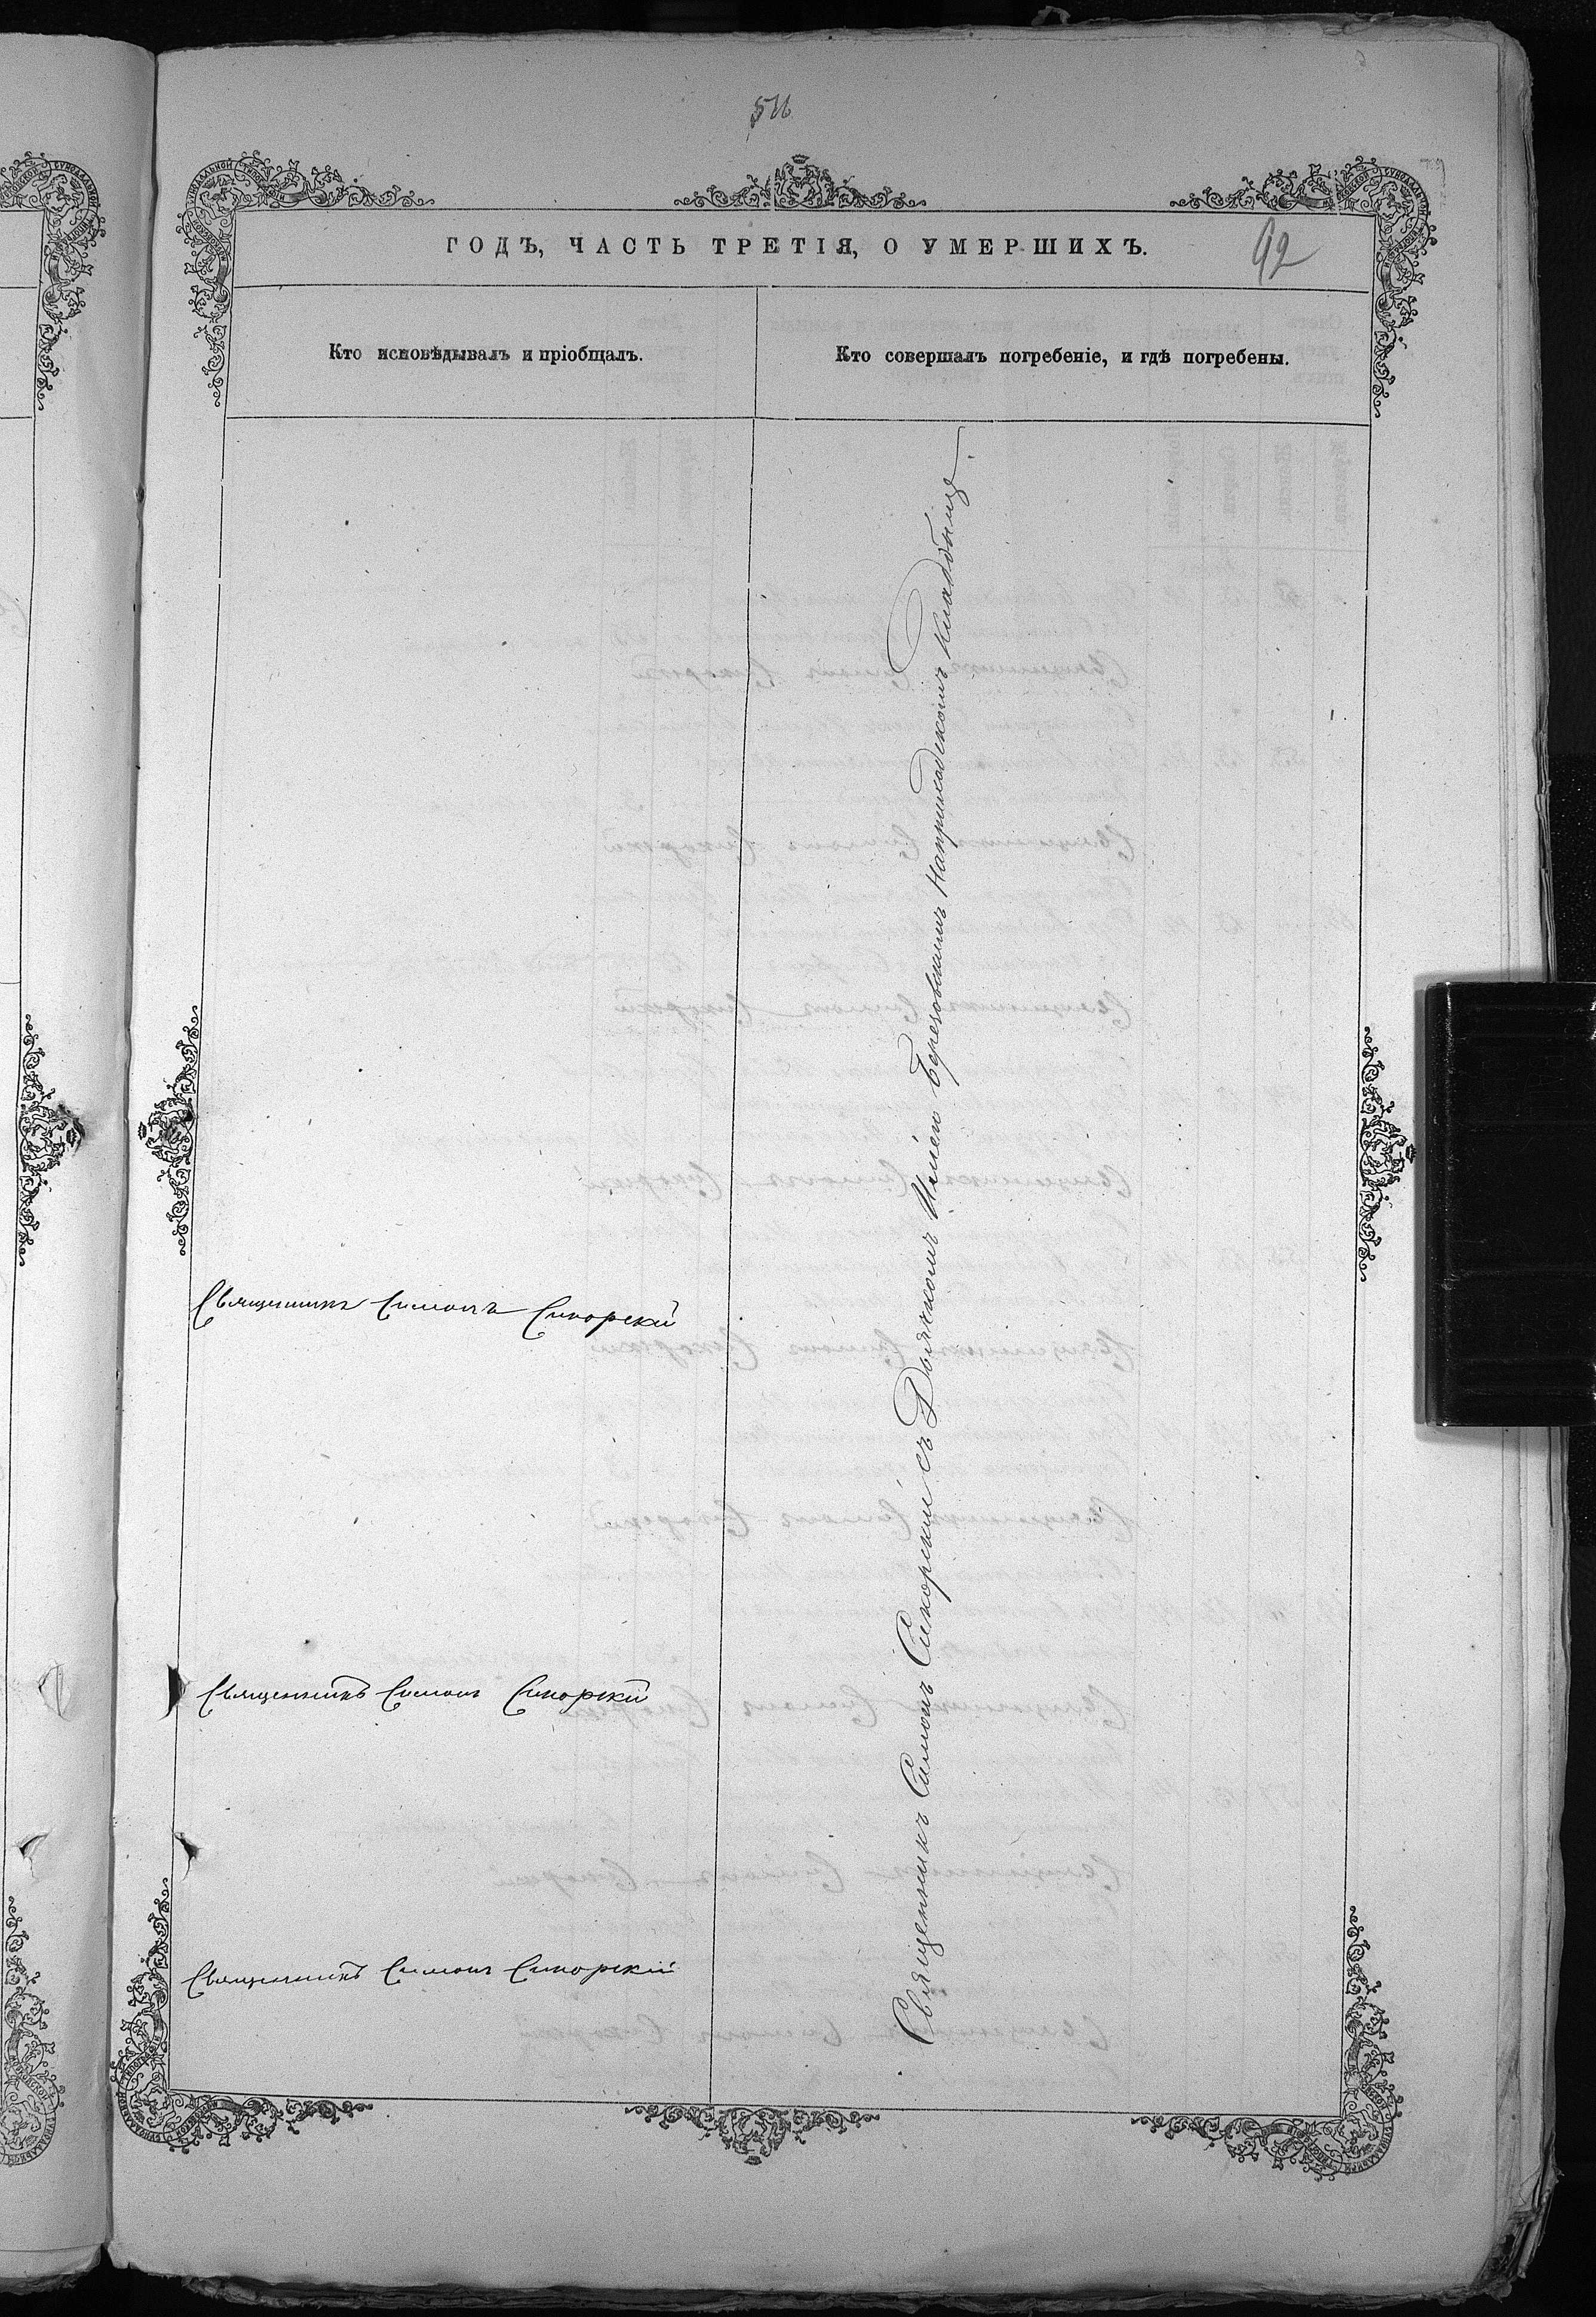 92
ГОДЪ, ЧАСТЬ ТРЕТІЯ, О УМЕРШИХЪ.
Кто исповѣдывалъ и пріобщалъ.
Кто совершалъ погребеніе, и гдѣ погребены.
Священникъ Симонъ Сикорскій
Священникъ Симонъ Сикорскій
Священникъ Симонъ Сикорскій
Священникъ Симонъ Сикорскій съ Дьячкомъ Березовскимъ На приходскомъ Кладбищѣ.